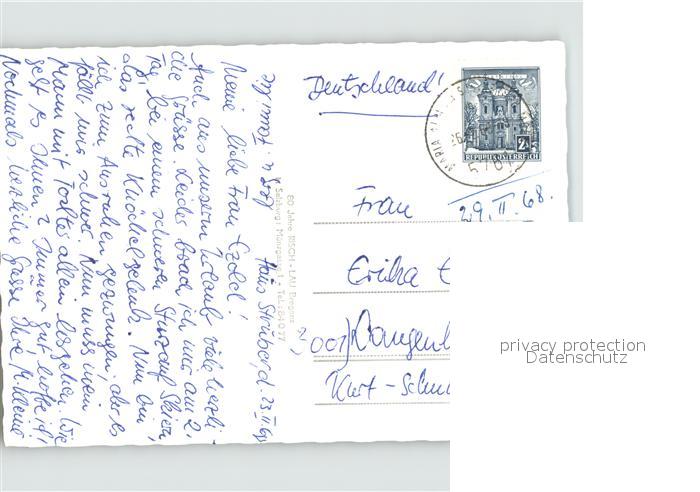 Haus Struber, d. 23.II.68
Meine liebe Frau Ezold!
Auch aus unserm Urlaub viele herzli-
che Grüsse. Leider brach ich mir am 2.
Tag bei einem schweren Sturz auf Skiern
das rechte Knöchelgelenk. Nun bin
ich zum Ausruhen gezwungen, aber es
fällt mir schwer. Nun muss mein
Mann mit Tochter allein losgehen. Wie
geht es Ihnen? Immer gut hoffe ich!
Nochmals herzliche Grüsse Ihre M. Kleine
60 Jahre RISCH-LAU Bregenz
Salzburg: Münzgasse 1 - Tel. 84 0 77
Deutschland!
REPUBLIK ÖSTERREICH
MARIA
5761
29.II.68.
Frau
Erika E
3001) Langenh
Kurt-Schu
privacy protection
Datenschutz